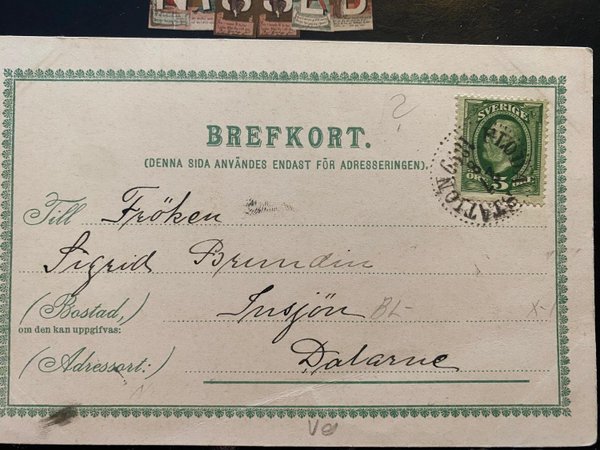 BREFKORT.
(DENNA SIDA ANVÄNDES ENDAST FÖR ADRESSERINGEN)
SVERIGE
5
ÖRE
STATION
Till Fröken
Sigrid Brundin
(Bostad, Insjön BL-
om den kan uppgifvas:
(Adressort:) Dalarne